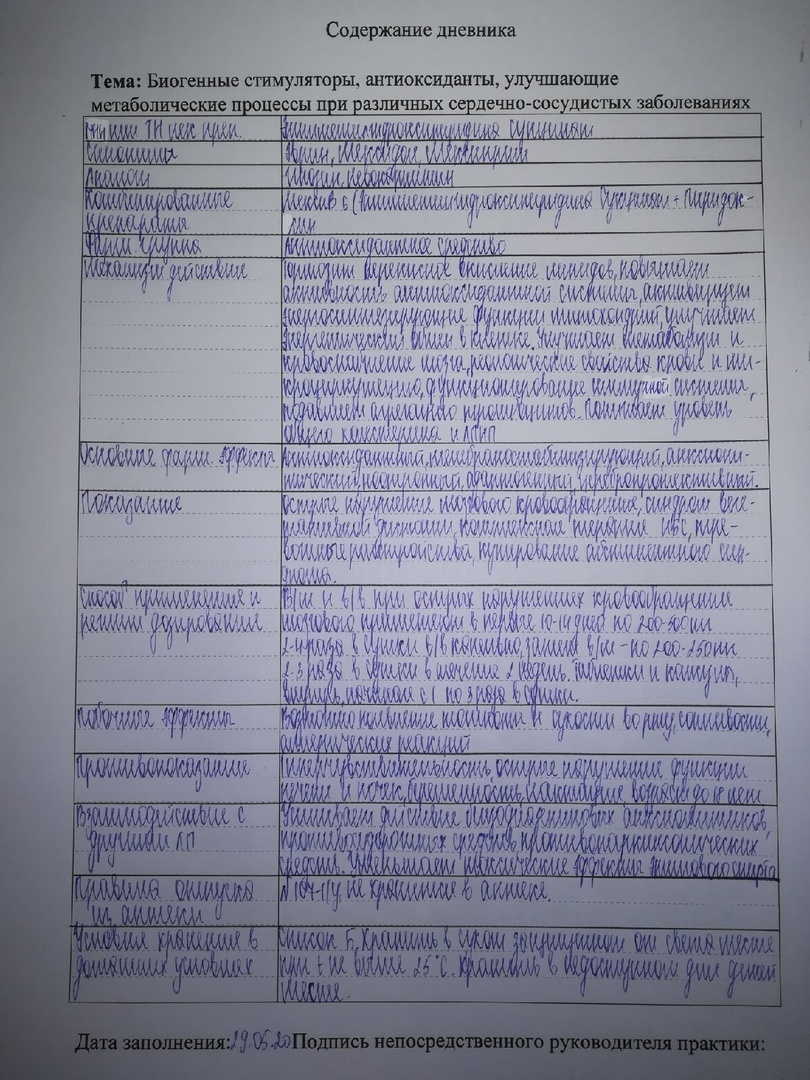 Содержание дневника
Тема: Биогенные стимуляторы, антиоксиданты, улучшающие
метаболические процессы при различных сердечно-сосудистых заболеваниях
или ТН лек. преп. Этилметилгидроксипиридина сукцинат
Синонимы Нейрокс, Мексидол, Мексиприм
Аналоги
Комбинированные Мексив 6 (Этилметилгидроксипиридина Сукцинат + Пиридок-
препараты син
Фарм. группа Антиоксидантное средство
Механизм действие Тормозит перекисное окисление липидов, повышает
активность антиоксидантной системы, активирует
энергосинтезирующие функции митохондрий, улучшает
энергетический обмен в клетке. Улучшает метаболизм и
кровоснабжение мозга, реологические свойства крови и ми-
кроциркуляцию, функционирование системы,
подавляет агрегацию тромбоцитов. Понижает уровень
общего холестерина и ЛПНП
Основные фарм. эффекты Антиоксидантный, мембраностабилизирующий, анксиоли-
тический, ноотропный, церебропротективный.
Показание Острые нарушения мозгового кровообращения, синдром веге-
тативной дистонии, комплексная терапия ИБС, тре-
вожные расстройства, купирование абстинентного син-
дрома.
Способ применения и В/м и в/в при острых нарушениях кровообращения
режим дозирования мозгового применяют в первые 10-14 дней по 200-500мг
2-4 раза в сутки в/в капельно, затем в/м - по 200-250мг
2-3 раза в сутки в течение 2 недель. Таблетки и капсулы,
внутрь, начиная с 1 по 3 раза в сутки.
Побочные эффекты Возможно появление тошноты и сухости во рту, сонливости,
аллергических реакций
Противопоказание Гиперчувствительность, острые нарушение функции
печени и почек, беременность, лактация, возраст до 18 лет
Взаимодействие с Усиливает действие анксиолитиков,
другими ЛП противосудорожных средств, противопаркинсонических
средств. Уменьшает токсические эффекты этилового спирта
Правила отпуска N 107-1/у, не хранится в аптеке.
из аптеки
Условия хранение в Список Б. Хранить в сухом защищённом от света месте
домашних условиях при t не выше 25°C. Хранить в недоступном для детей
месте.
Дата заполнения: 29.05.20 Подпись непосредственного руководителя практики: